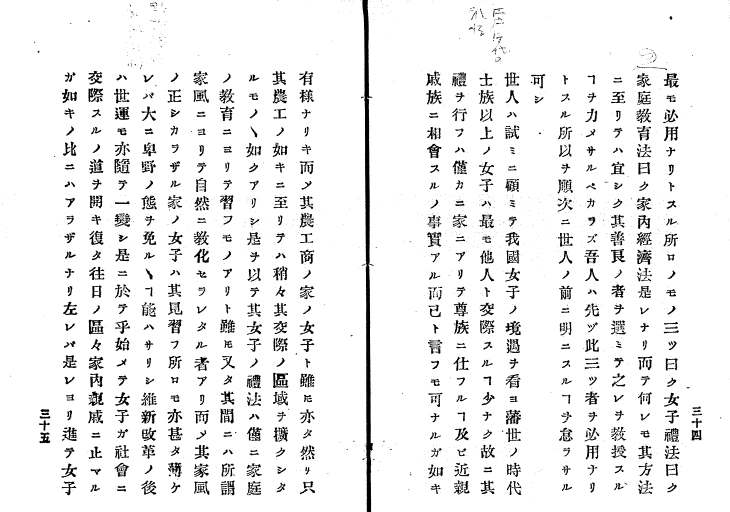 三十四
最モ必用ナリトスル所ロノモノ三ツ曰ク女子禮法曰ク
家庭教育法曰ク家內經濟法是レナリ而テ何レモ其方法
ニ至リテハ宜シク其善良ノ者ヲ選ミテ之レヲ教授スル
ヿヲ力メサルベカラズ吾人ハ先ヅ此三ツ者ヲ必用ナリ
トスル所以ヲ順次ニ世人ノ前ニ明ニスルヿヲ怠ラサル
可シ
世人ハ試ミニ顧ミテ我國女子ノ境遇ヲ看ヨ藩世ノ時代
士族以上ノ女子ハ最モ他人ト交際スルヿ少ナク故ニ其
禮ヲ行フハ僅カニ家ニアリテ尊族ニ仕フルヿ及ビ近親
戚族ニ相會スルノ事實アル而已ト言フモ可ナルガ如キ
有樣ナリキ而メ其農工商ノ家ノ女子ト雖𪜈亦タ然リ只
其農工ノ如キニ至リテハ稍々其交際ノ區域ヲ擴クシタ
ルモノヽ如クアリシ是ヲ以テ其女子ノ禮法ハ僅ニ家庭
ノ教育ニヨリテ習フモノアリト雖𪜈又タ其間ニハ所謂
家風ニヨリテ自然ニ教化セラレタル者アリ而メ其家風
ノ正シカラザル家ノ女子ハ其見習フ所ロモ亦甚タ薄ケ
レバ大ニ卑野ノ態ヲ免ルヽヿ能ハサリシ維新改革ノ後
ハ世運モ亦隨テ一變シ是ニ於テ乎始メテ女子ガ社會ニ
交際スルノ道ヲ開キ復タ往日ノ區々家內親戚ニ止マル
ガ如キノ比ニハアラザルナリ左レバ是レヨリ進テ女子
三十五